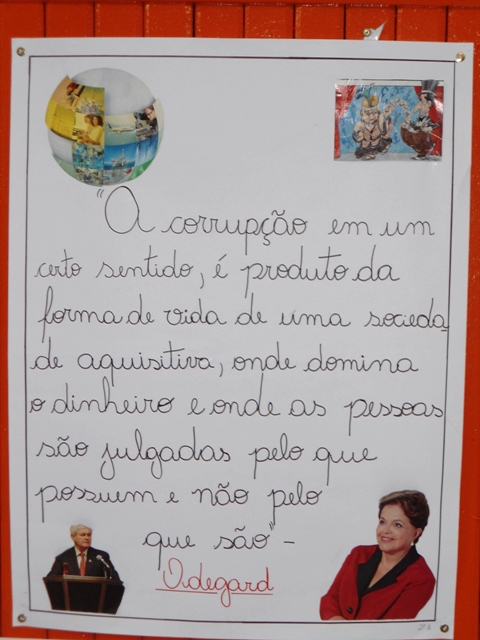 "A corrupção em um
certo sentido, é produto da
forma de vida de uma socieda-
de aquisitiva, onde domina
o dinheiro e onde as pessoas
são julgadas pelo que
possuem e não pelo
que são" -
Odegard